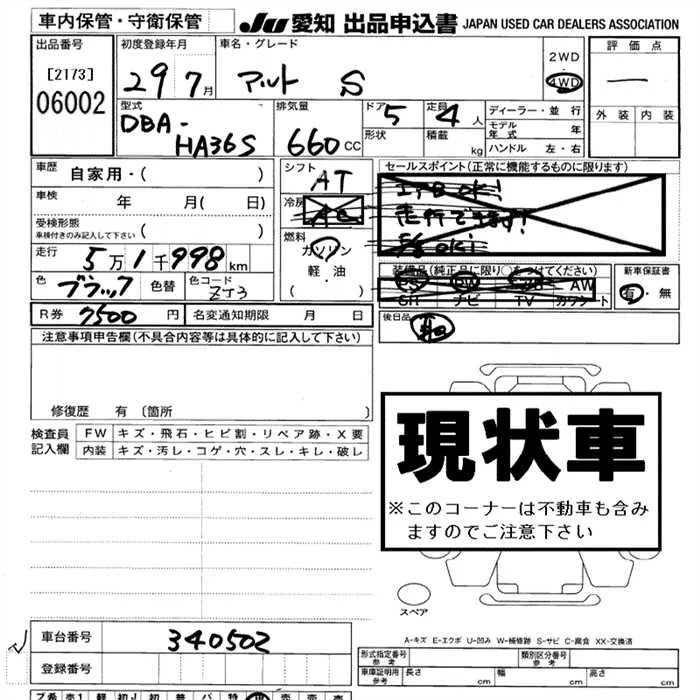 車内保管・守衛保管 JU 愛知 出品申込書 JAPAN USED CAR DEALERS ASSOCIATION
出品番号 初度登録年月 車名・グレード 2WD 評価点
[2173] 29 7月 アルト S 4WD —
06002 型式 排気量 ドア 5 定員 4人 ディーラー・並行 外装 内装
DBA- 形状 積載 kg モデル年式 年
HA36S 660 CC ハンドル 左・右
車歴 自家用・( ) シフト AT セールスポイント(正常に機能するものに限ります)
車検 年 月( 日) 冷房 AC エアBOK!
受検形態 車検付きのみ記入して下さい ( ) 走行できます!
走行 5万1千998km 燃料 ガソリン OK!
色 ブラック 色替 色コード ZJ3 軽油 装備品(純正品に限り○をつけてください) 新車保証書
・( ) PS PW AW 有・無
SR ナビ TV カワシート
R券 7500円 名変通知期限 月 日 後日品
注意事項申告欄(不具合内容等は具体的に記入して下さい)
修復歴 有〔箇所 〕
検査員記入欄 FW キズ・飛石・ヒビ割・リペア跡・X要
内装 キズ・汚レ・コゲ・穴・スレ・キレ・破レ
現状車
※このコーナーは不動車も含み
ますのでご注意下さい
スペア
A-キズ E-エクボ U-凹み W-補修跡 S-サビ C-腐食 XX-交換済
車台番号 340502 形式指定番号 参考 類別区分番号 参考
登録番号 車庫証明用 参考 長さ cm 幅 cm 高さ cm